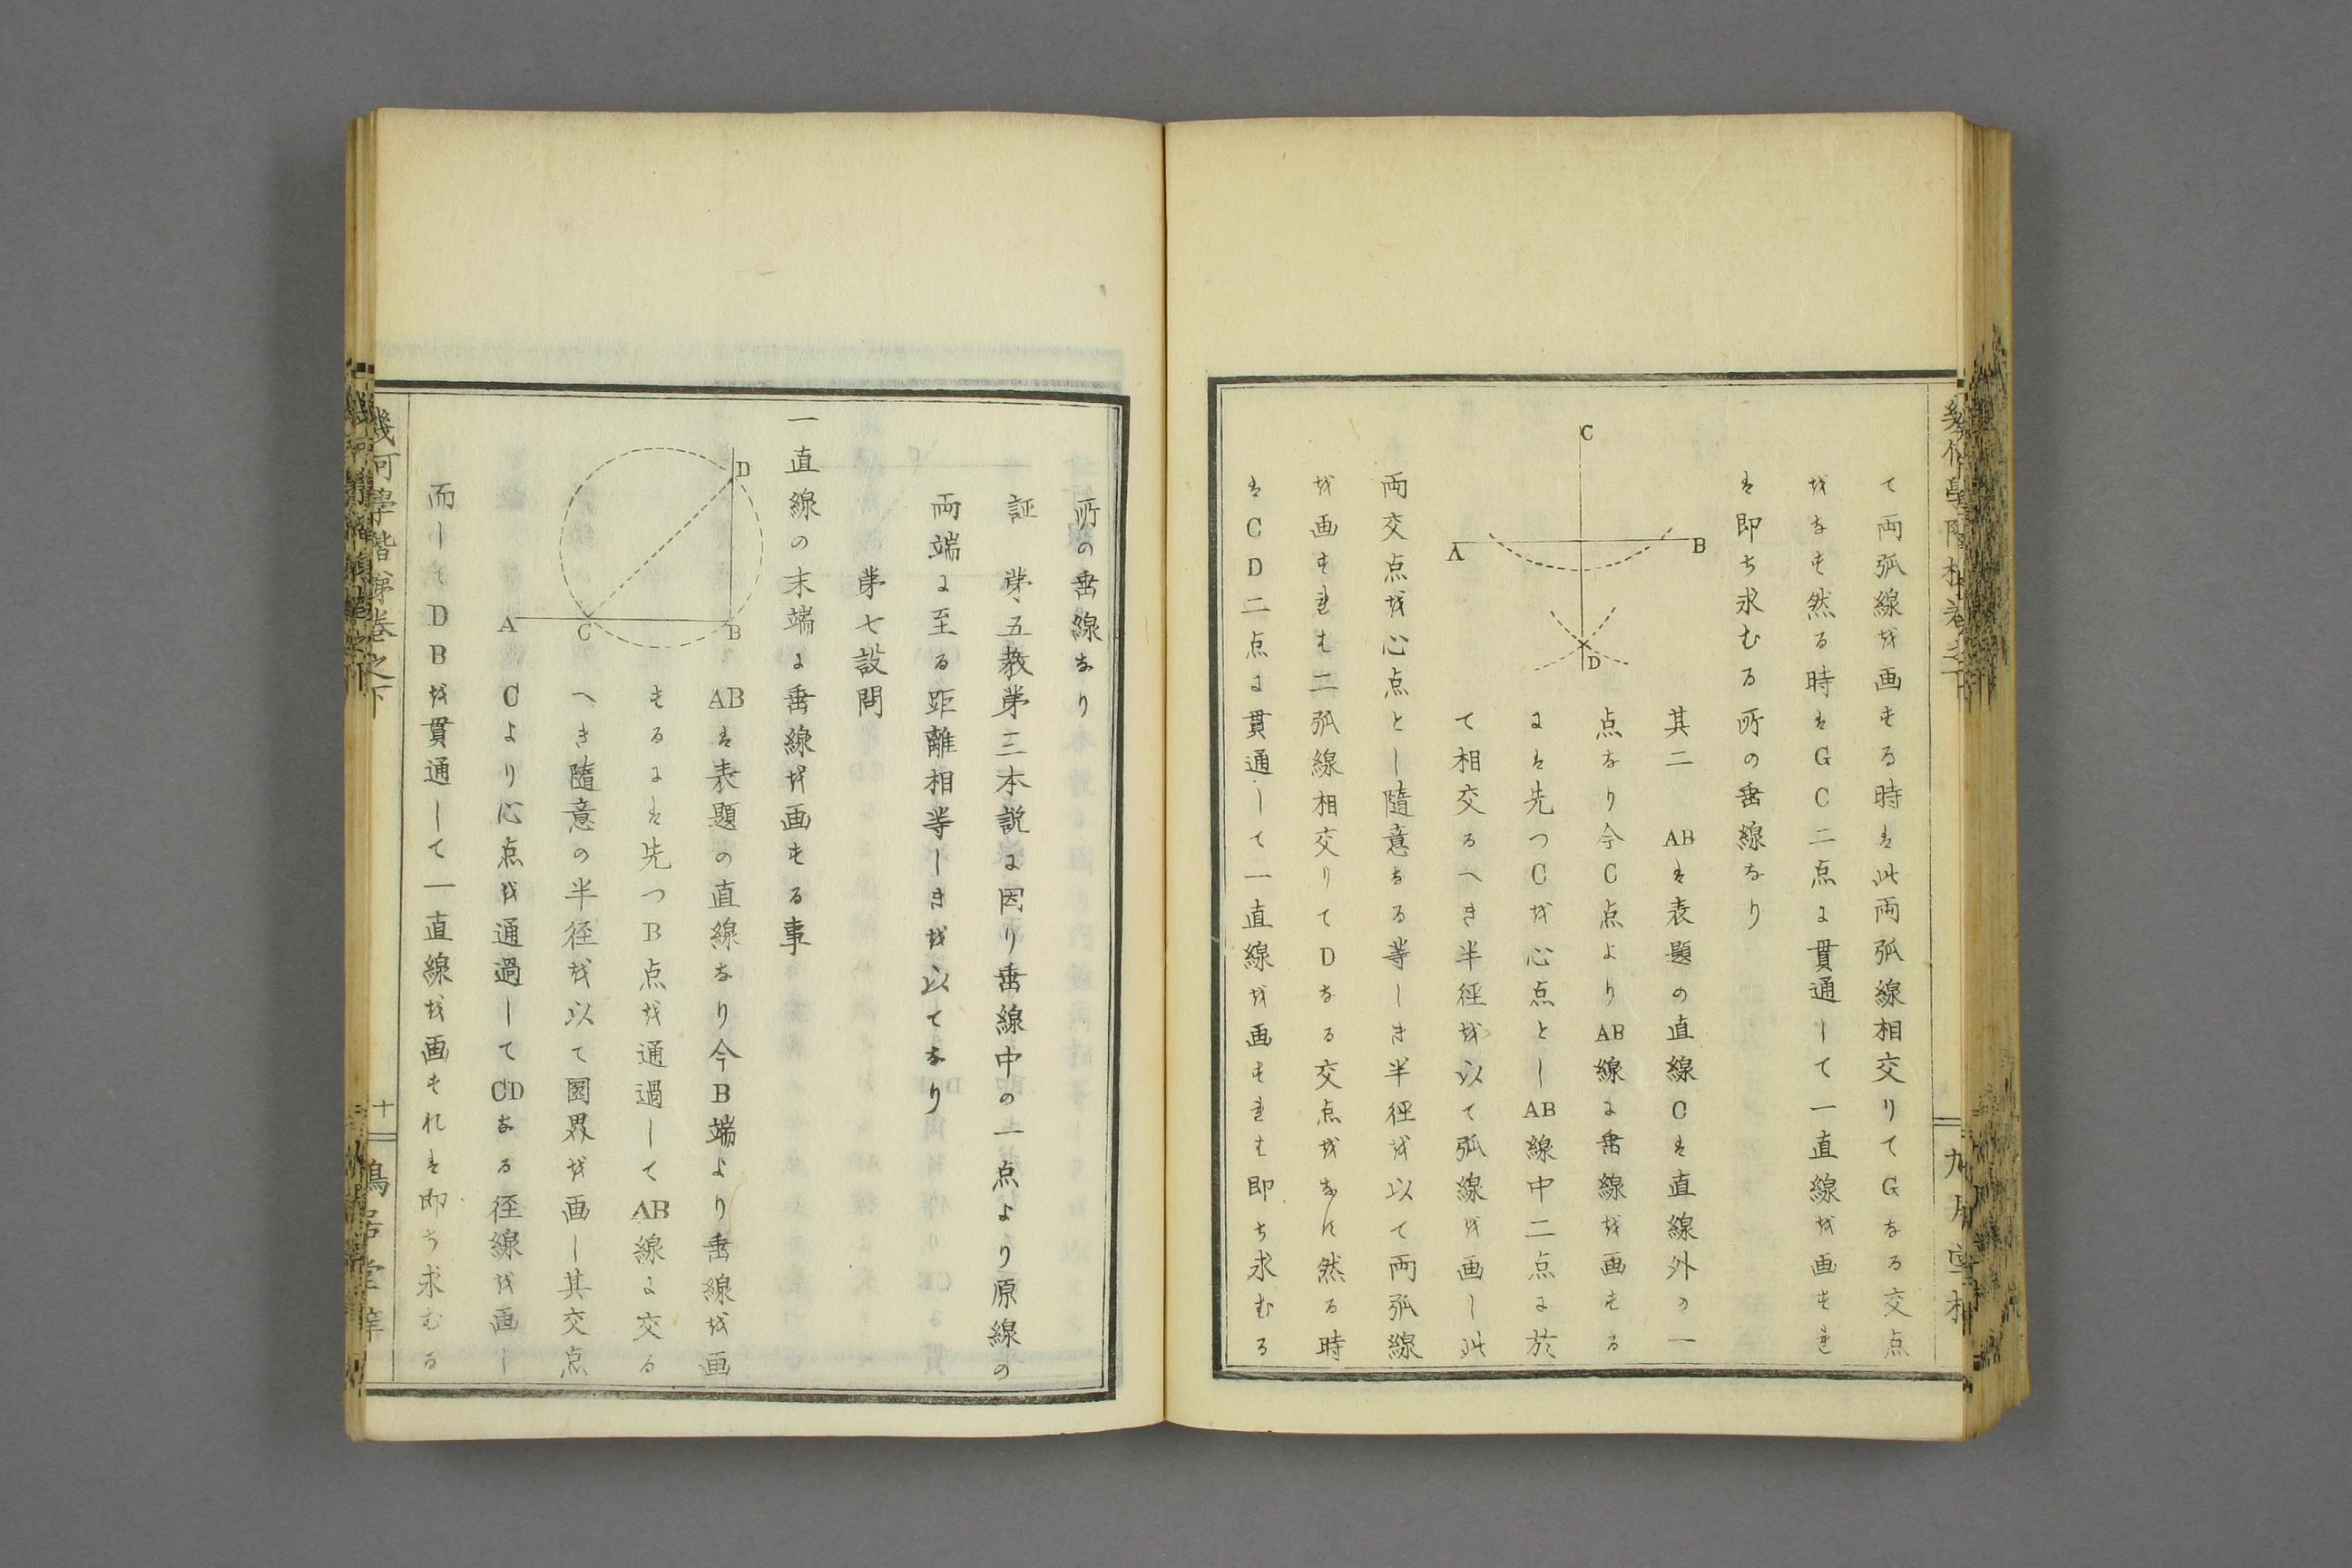 て両弧線を画する時は此両弧線相交りてGなる交点
をなす然る時はGC二点に貫通して一直線を画すれ
は即ち求むる所の垂線なり
C
A
B
D
其二　ABは表題の直線Cは直線外の一
点なり今C点よりAB線に垂線を画する
には先つCを心点としAB線中二点に於
て相交るへき半径を以て弧線を画し此
両交点を心点とし随意なる等しき半径を以て両弧線
を画すれは二弧線相交りてDなる交点をなん然る時
はCD二点に貫通して一直線を画すれは即ち求むる
所の垂線なり
証　第五教第三本説に因り垂線中の一点より原線の
両端に至る距離相等しきを以てなり
第七設問
一直線の末端に垂線を画する事
D
A
C
B
ABは表題の直線なり今B端より垂線を画
するには先つB点を通過してAB線に交る
へき随意の半径を以て圏界を画し其交点
Cより心点を通過してCDなる径線を画し
而してDBを貫通して一直線を画すれは即ち求むる
幾何學階梯巻之下
十